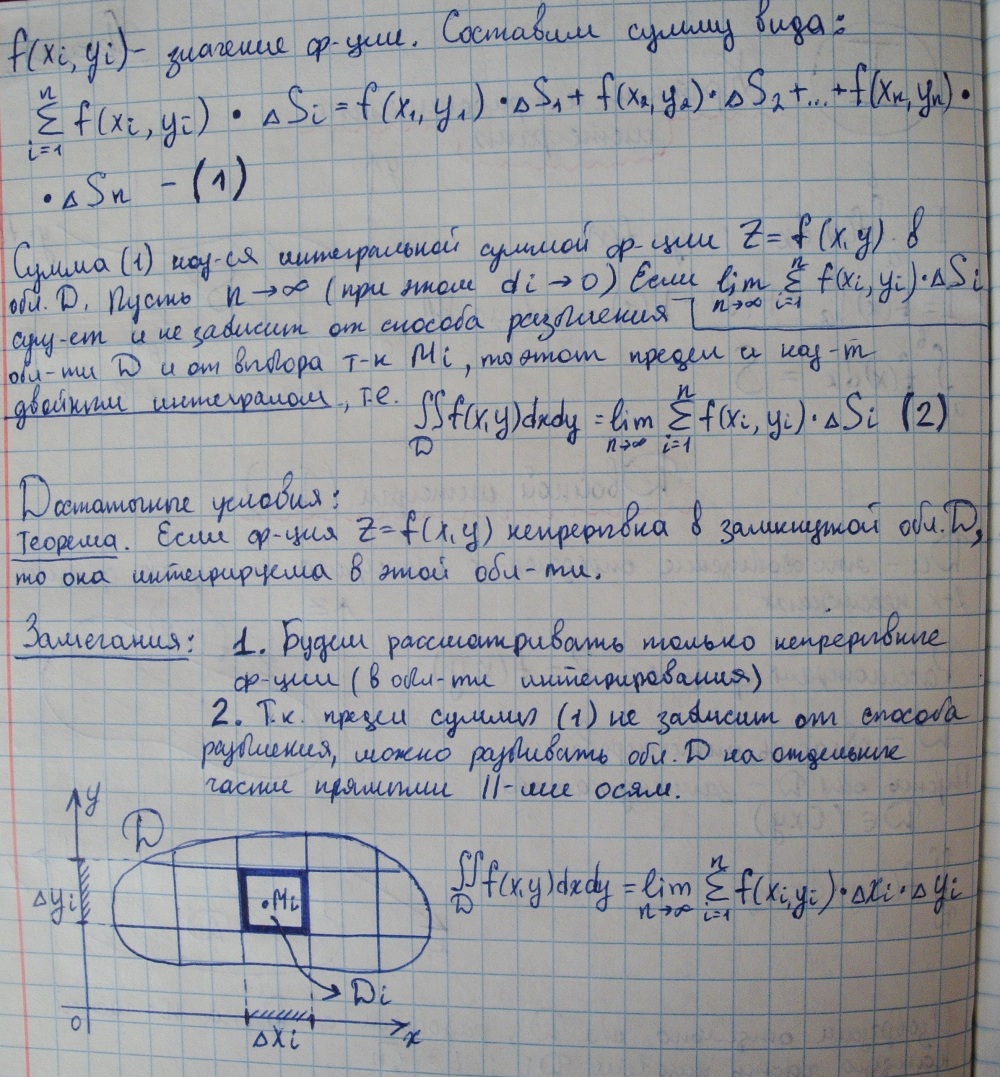 f(xᵢ, yᵢ) – значение ф-ции. Составим сумму вида:
∑ⁿᵢ₌₁ f(xᵢ, yᵢ) · ΔSᵢ = f(x₁, y₁) · ΔS₁ + f(x₂, y₂) · ΔS₂ + ... + f(xₙ, yₙ) ·
· ΔSₙ – (1)
Сумма (1) наз-ся интегральной суммой ф-ции Z = f(x, y) в
обл. D. Пусть n → ∞ (при этом dᵢ → 0) Если lim n→∞ ∑ⁿᵢ₌₁ f(xᵢ, yᵢ) · ΔSᵢ
сущ-ет и не зависит от способа разбиения
обл-ти D и от выбора т-к Mᵢ, то этот предел и наз-т
двойным интегралом, т.е. ∬D f(x, y) dxdy = lim n→∞ ∑ⁿᵢ₌₁ f(xᵢ, yᵢ) · ΔSᵢ (2)
Достаточные условия:
Теорема. Если ф-ция Z = f(x, y) непрерывна в замкнутой обл. D,
то она интегрируема в этой обл-ти.
Замечания: 1. Будем рассматривать только непрерывные
ф-ции (в обл-ти интегрирования)
2. Т.к. предел суммы (1) не зависит от способа
разбиения, можно разбивать обл. D на отдельные
части прямыми ||-ми осям.
y
D
Δyᵢ
· Mᵢ
∬D f(x, y) dxdy = lim n→∞ ∑ⁿᵢ₌₁ f(xᵢ, yᵢ) · Δxᵢ · Δyᵢ
Dᵢ
0
Δxᵢ
x